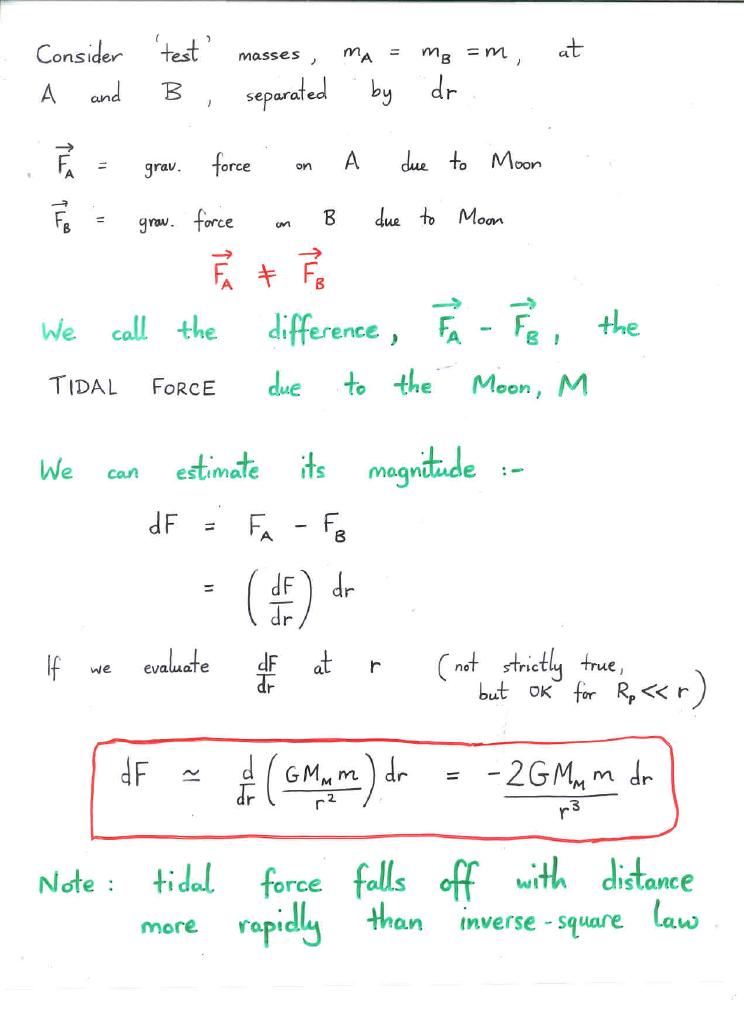 Consider 'test' masses, m_A = m_B = m, at
A and B, separated by dr
F⃗_A = grav. force on A due to Moon
F⃗_B = grav. force on B due to Moon
F⃗_A ≠ F⃗_B
We call the difference, F⃗_A - F⃗_B, the
TIDAL FORCE due to the Moon, M
We can estimate its magnitude :-
dF = F_A - F_B
= (dF/dr) dr
If we evaluate dF/dr at r (not strictly true,
but OK for R_P << r)
dF ≃ d/dr (GM_M m/r²) dr = -2GM_M m dr/r³
Note: tidal force falls off with distance
more rapidly than inverse-square law